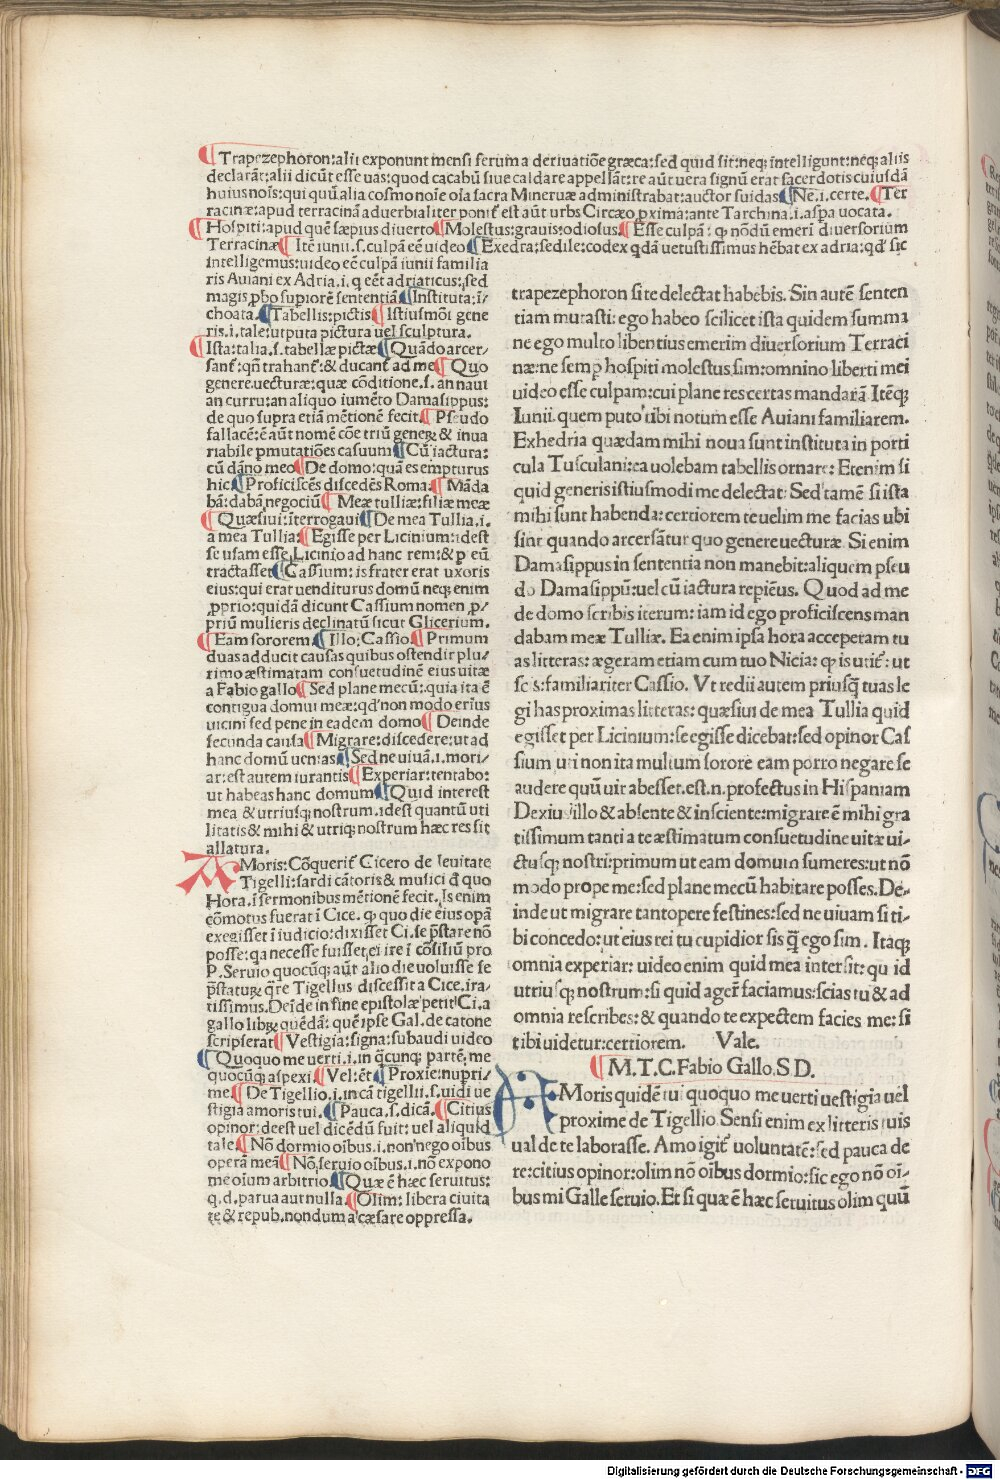 ¶Trapezephoron:alii exponunt mensi ferum a deriuatiõe græca:sed quid sit:neq; intelligunt:neq; aliis
declarãt:alii dicũt esse uas:quod cacabũ siue caldare appellãt:re aũt uera signũ erat sacerdotis cuiusdã
huius noĩs:qui quũ alia cosmo noĩe oĩa sacra Mineruæ administrabat:auctor suidas¶Ne.i.certe.¶Ter
racinæ:apud terracinã aduerbialiter ponit̃ est aũt urbs Circæo ꝓxima:ante Tarchina.i.aspa uocata.
¶Hospiti:apud quẽ sæpius diuerto¶Molestus:grauis:odiosus¶Esse culpã: ꝙ nõdũ emeri diuersorium
Terracinæ¶Itẽ iunii.s.culpã eẽ uideo¶Exedra:sedile:codex qdã uetustissimus hẽbat ex adria:qđ sic
intelligemus:uideo eẽ culpã iunii familia
ris Auiani ex Adria.i. q eẽt adriaticus:sed
magis ꝓbo supiorẽ sententiã¶Instituta:ĩ/
choata.¶Tabellis:pictis¶Istiusmõi gene
ris.i.tale:utputa pictura uel sculptura.
¶Ista:talia.s.tabellæ pictæ¶Quãdo arcer/
sant̃:qñ trahant̃:& ducant̃ ad me¶Quo
genere uecturæ:quæ cõditione.s.an naui
an curru:an aliquo iumẽto Damasippus:
de quo supra etiã mẽtionẽ fecit¶Pseudo
fallacẽ:ẽ aũt nomẽ cõe triũ geneꝝ & inua
riabile pmutatiões casuum¶Cũ iactura:
cũ dãno meo¶De domo:quã es empturus
hic¶Proficiscẽs discedẽs Roma¶Mãda
bã:dabã negociũ¶Meæ tulliæ:filiæ meæ
¶Quæsiui:ĩterrogaui¶De mea Tullia.i.
a mea Tullia¶Egisse per Licinium:idest
se usam esse Licinio ad hanc rem:& p eũ
tractasset¶Cassium:is frater erat uxoris
eius:qui erat uenditurus domũ neq; enim
ꝓprio:quidã dicunt Cassium nomen ꝓ/
priũ mulieris declinatũ sicut Glicerium.
¶Eam sororem¶Illo:Cassio¶Primum
duas adducit causas quibus ostendir plu/
rimo æstimatam consuetudinẽ eius uitæ
a Fabio gallo¶Sed plane mecũ:quia ita ẽ
contigua domui meæ:qđ non modo erius
uicini sed pene in eadem domo¶Deinde
secunda causa¶Migrare:discedere:ut ad
hanc domũ uenias¶Sed ne uiuã.i.mori/
ar:est autem iurantis¶Experiar:tentabo:
ut habeas hanc domum¶Quid interest
mea & utriusq; nostrum.idest quantũ uti
litatis & mihi & utriq; nostrum hæc res sit
allatura.
AMoris:Cõquerit̃ Cicero de leuitate
Tigelli:sardi cãtoris & musici đ quo
Hora.ĩ sermonibus mẽtionẽ fecit.Is enim
cõmotus fuerat ĩ Cice. ꝙ quo die eius opã
exegisset ĩ iudicio:dixisset Ci.se p̃stare nõ
posse:qa necesse fuisset ei ire ĩ cõsiliũ pro
P.Seruio quocũq; aũt alio die uoluisse se
p̃staturꝝ q̃re Tigellus discessit a Cice.ira/
tissimus.Deĩde in fine epistolæ petit Ci.a
gallo libꝝ quẽdã: quẽ ipse Gal.de catone
scripserat¶Vestigia:signa:subaudi uideo
¶Quoquo me uerti.i.in q̃cunq; partẽ me
quocũq; aspexi¶Vel:ẽt¶Proxie:nupri/
me¶De Tigellio.i.incã tigellii.s.uidi ue
stigia amoris tui.¶Pauca.s.dicã.¶Citius
opinor:deest uel dicẽdũ fuit: uel aliquid
tale¶Nõ dormio oĩbus.i.non nego oĩbus
operã meã¶Nõ seruio oĩbus.i.nõ expono
me oĩum arbitrio¶Quæ ẽ hæc seruitus:
q.d.parua aut nulla¶Olim: libera ciuita
te & repub.nondum a cæsare oppressa.
trapezephoron si te delectat habebis. Sin autẽ senten
tiam mutasti: ego habeo scilicet ista quidem summa
ne ego multo libentius emerim diuersorium Terraci
næ:ne semp hospiti molestus sim:omnino liberti mei
uideo esse culpam:cui plane res certas mandarã Itẽq;
Iunii.quem puto tibi notum esse Auiani familiarem.
Exhedria quædam mihi noua sunt instituta in porti
cula Tusculani:ea uolebam tabellis ornare: Etenim si
quid generis istiusmodi me delectat: Sed tamẽ si ista
mihi sunt habenda:certiorem te uelim me facias ubi
sint quando arcersãtur quo genere uecturæ Si enim
Damasippus in sententia non manebit:aliquem pseu
do Damasippũ:uel cũ iactura repiẽus. Quod ad me
de domo scribis iterum: iam id ego proficiscens man
dabam meæ Tulliæ. Ea enim ipsa hora acceperam tu
as litteras: ægeram etiam cum tuo Nicia: ꝙ is utit̃: ut
scis:familiariter Cassio. Vt redii autem priusq̃ tuas le
gi has proximas litteras: quæsiui de mea Tullia quid
egisset per Licinium:se egisse dicebat:sed opinor Cas
sium uti non ita multum sorore eam porro negare se
audere quũ uir abesset.est.n.profectus in Hispaniam
Dexius illo & absente & insciente:migrare ẽ mihi gra
tissimum tanti a te æstimatum consuetudinẽ uitæ ui-
ctusq; nostri:primum ut eam domum sumeres:ut nõ
modo prope me:sed plane mecũ habitare posses.De-
inde ut migrare tantopere festines:sed ne uiuam si ti-
bi concedo:ut eius rei tu cupidior sis q̃ ego sim. Itaq;
omnia experiar: uideo enim quid mea intersit: quid
utriusq; nostrum:si quid ager̃ faciamus:scias tu & ad
omnia rescribes:& quando te expectem facies me: si
tibi uidetur:certiorem. Vale.
¶M.T.C.Fabio Gallo.S D.
AMoris quidẽ tui quoquo me uerti uestigia uel
proxime de Tigellio.Sensi enim ex litteris tuis
ual de te laborasse. Amo igit̃ uoluntatẽ:sed pauca de
re:citius opinor:olim nõ oĩbus dormio:sic ego nõ oĩ-
bus mi Galle seruio.Et si quæ ẽ hæc seruitus olim quũ
Digitalisierung gefördert durch die Deutsche Forschungsgemeinschaft - DFG